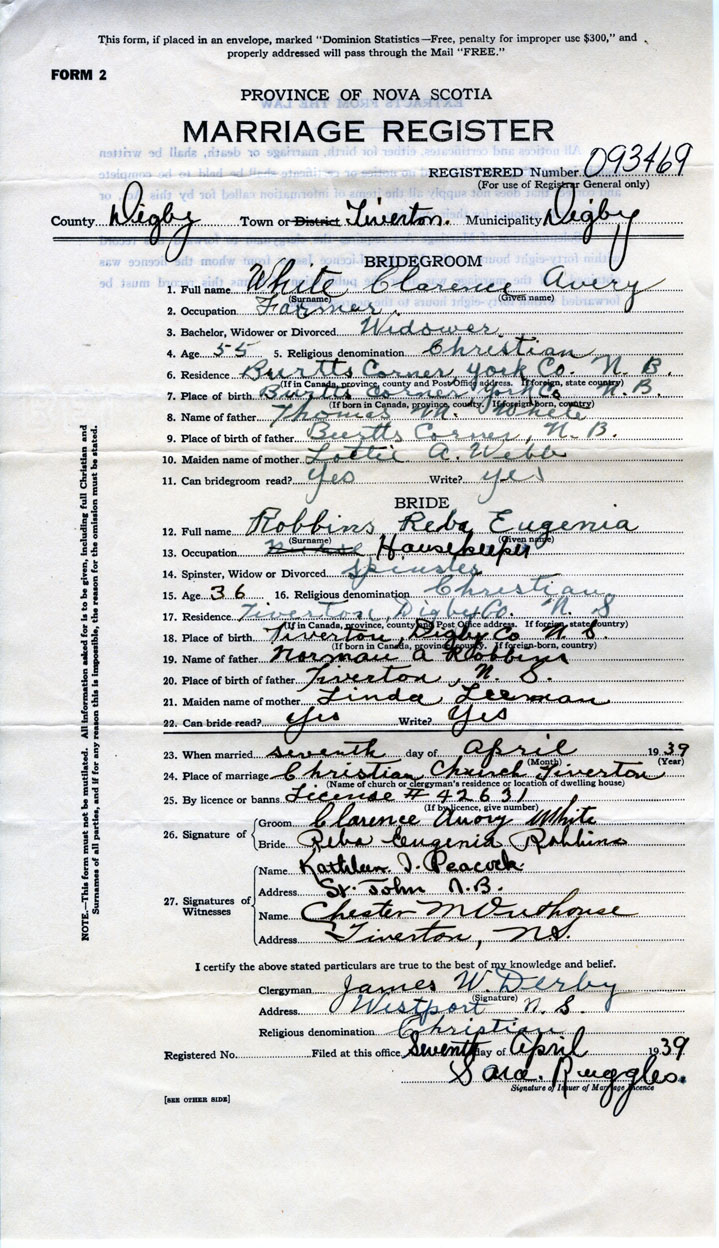 This form, if placed in an envelope, marked "Dominion Statistics—Free, penalty for improper use $300," and
properly addressed will pass through the Mail "FREE."
FORM 2
PROVINCE OF NOVA SCOTIA
MARRIAGE REGISTER
REGISTERED Number 093469
(For use of Registrar General only)
County Digby Town or District Tiverton. Municipality Digby
BRIDEGROOM
1. Full name White Clarence Avery
(Surname) (Given name)
2. Occupation Farmer.
3. Bachelor, Widower or Divorced Widower
4. Age 55 5. Religious denomination Christian
6. Residence Burtts Corner, York Co. N. B.
(If in Canada, province, county and Post Office address. If foreign, state country)
7. Place of birth Burtts Corner York Co N.B.
(If born in Canada, province, county. If foreign-born, country)
8. Name of father Thomas M. White
9. Place of birth of father Burtts Corner, N.B.
10. Maiden name of mother Lottie A. Webb
11. Can bridegroom read? yes Write? yes
BRIDE
12. Full name Robbins Reba Eugenia
(Surname) (Given name)
13. Occupation Housekeeper
14. Spinster, Widow or Divorced Spinster
15. Age 36 16. Religious denomination Christian
17. Residence Tiverton, Digby Co. N. S
(If in Canada, province, county and Post Office address. If foreign, state country)
18. Place of birth Tiverton, Digby Co N.S.
(If born in Canada, province, county. If foreign-born, country)
19. Name of father Norman A Robbins
20. Place of birth of father Tiverton, N. S.
21. Maiden name of mother Linda Leeman
22. Can bride read? yes Write? Yes
23. When married seventh day of April 1939
(Month) (Year)
24. Place of marriage Christian Church Tiverton
(Name of church or clergyman's residence or location of dwelling house)
25. By licence or banns License # 42631
(If by licence, give number)
26. Signature of Groom Clarence Avory White
Bride Reba Eugenia Robbins
27. Signatures of Witnesses
Name Kathleen I. Peacock
Address St. John N.B.
Name Chester M Outhouse
Address Tiverton, N.S.
I certify the above stated particulars are true to the best of my knowledge and belief.
Clergyman James W. Derby
(Signature)
Address Westport N.S.
Religious denomination Christian
Registered No. Filed at this office Seventh day of April 1939
Sara. Ruggles.
Signature of Issuer of Marriage Licence
[SEE OTHER SIDE]
NOTE.—This form must not be mutilated. All information asked for is to be given, including full Christian and
Surnames of all parties, and if for any reason this is impossible, the reason for the omission must be stated.